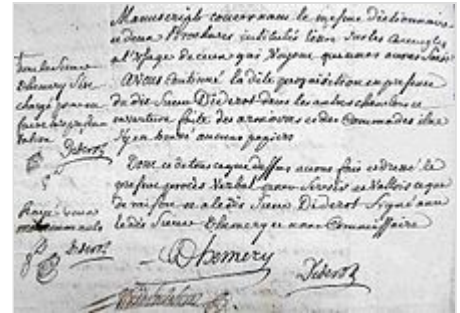 Manuscripts concernans le mesme dictionnaire
et deux Brochures intitulées lettre sur les Aveugles
a l'Usage de ceux qui Voyent que nous avons saisi
Avons Continué la dite perquisition en presence
du dit Sieur Diderot dans les autres chambres et
ouverture faite des armoires et des Commodes il ne
s'y en trouvé aucuns papiers
Dont et de tout ce que dessus avons fait et dressé le
present procès Verbal pour servir et Valloir ce que
de raison et a le dit Sieur Diderot Signé avec
le dit Sieur Dhemery et nous Commissaire
Dhemery
Diderot
dont le Sieur
Dhemery s'est
chargé pour en
faire la
Diderot
Rayé
mots nuls
Diderot